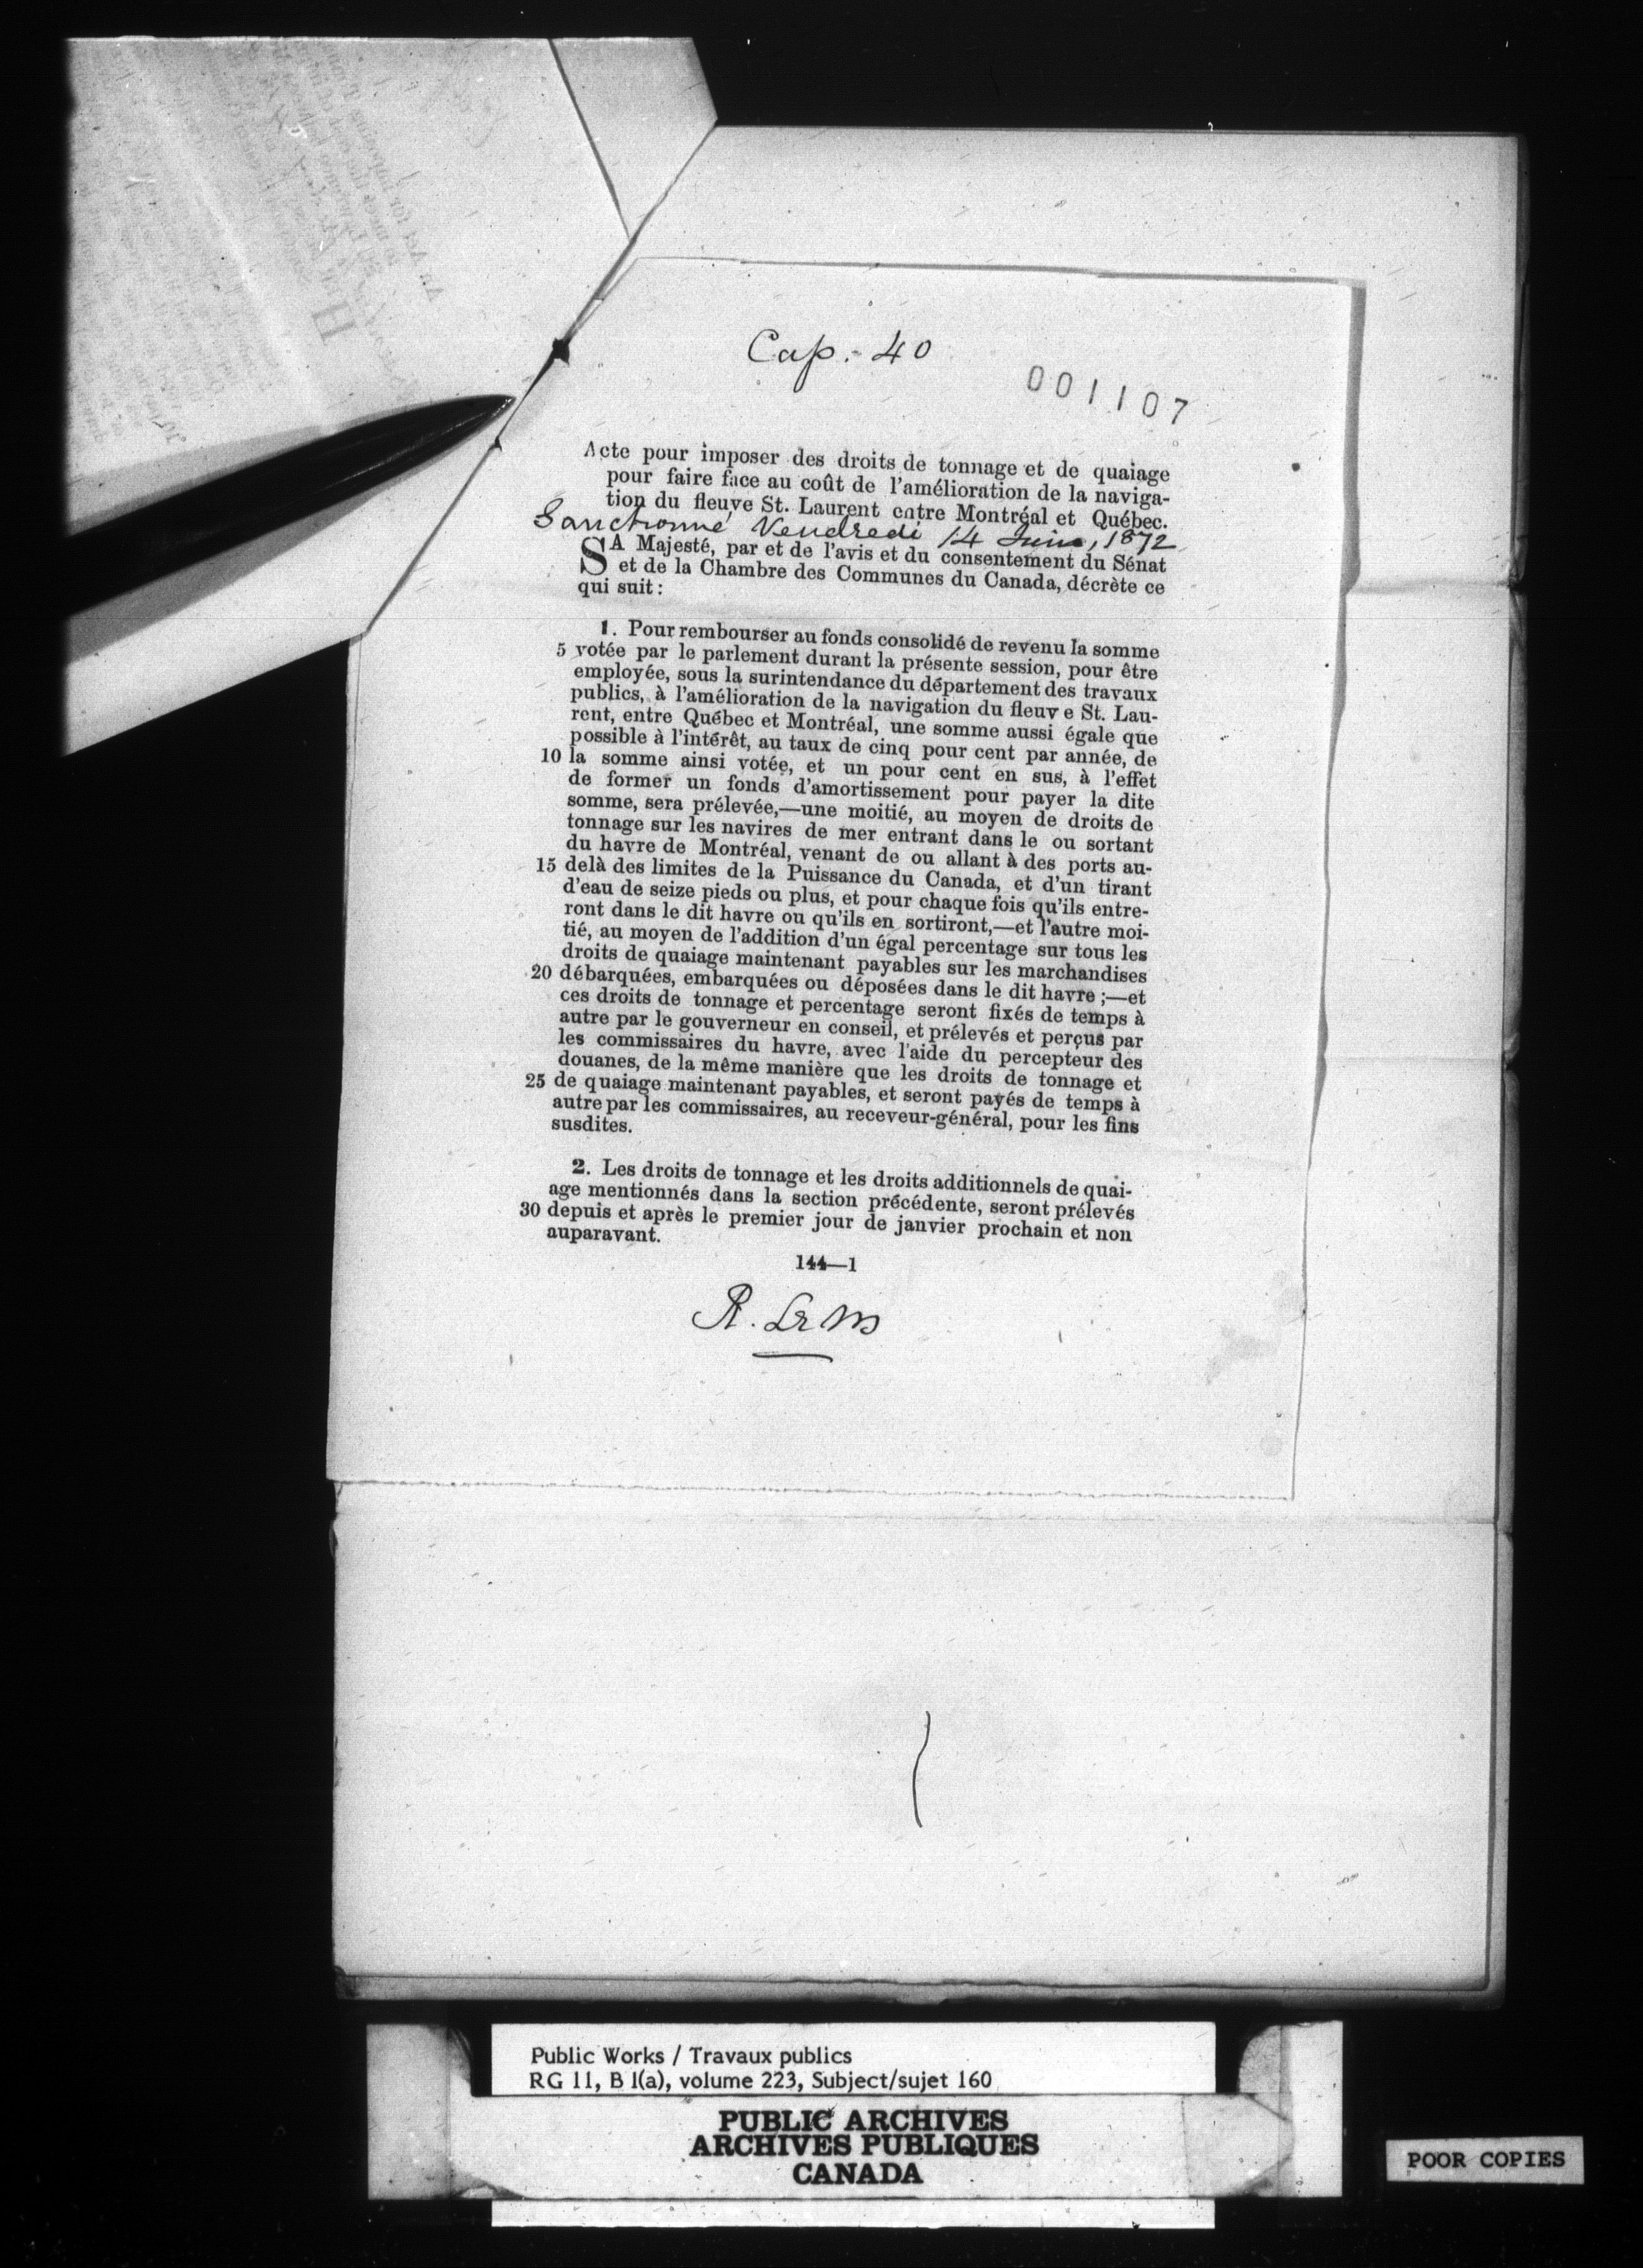 Cap. 40
001107
Acte pour imposer des droits de tonnage et de quaiage
pour faire face au coût de l'amélioration de la naviga-
tion du fleuve St. Laurent entre Montréal et Québec.
Sanctionné Vendredi 14 Juin, 1872
SA Majesté, par et de l'avis et du consentement du Sénat
et de la Chambre des Communes du Canada, décrète ce
qui suit :
1. Pour rembourser au fonds consolidé de revenu la somme
5 votée par le parlement durant la présente session, pour être
employée, sous la surintendance du département des travaux
publics, à l'amélioration de la navigation du fleuve St. Lau-
rent, entre Québec et Montréal, une somme aussi égale que
possible à l'intérêt, au taux de cinq pour cent par année, de
10 la somme ainsi votée, et un pour cent en sus, à l'effet
de former un fonds d'amortissement pour payer la dite
somme, sera prélevée,—une moitié, au moyen de droits de
tonnage sur les navires de mer entrant dans le ou sortant
du havre de Montréal, venant de ou allant à des ports au-
15 delà des limites de la Puissance du Canada, et d'un tirant
d'eau de seize pieds ou plus, et pour chaque fois qu'ils entre-
ront dans le dit havre ou qu'ils en sortiront,—et l'autre moi-
tié, au moyen de l'addition d'un égal percentage sur tous les
droits de quaiage maintenant payables sur les marchandises
20 débarquées, embarquées ou déposées dans le dit havre ;—et
ces droits de tonnage et percentage seront fixés de temps à
autre par le gouverneur en conseil, et prélevés et perçus par
les commissaires du havre, avec l'aide du percepteur des
douanes, de la même manière que les droits de tonnage et
25 de quaiage maintenant payables, et seront payés de temps à
autre par les commissaires, au receveur-général, pour les fins
susdites.
2. Les droits de tonnage et les droits additionnels de quai-
age mentionnés dans la section précédente, seront prélevés
30 depuis et après le premier jour de janvier prochain et non
auparavant.
144—1
Public Works / Travaux publics
RG 11, B 1(a), volume 223, Subject/sujet 160
PUBLIC ARCHIVES
ARCHIVES PUBLIQUES
CANADA
POOR COPIES